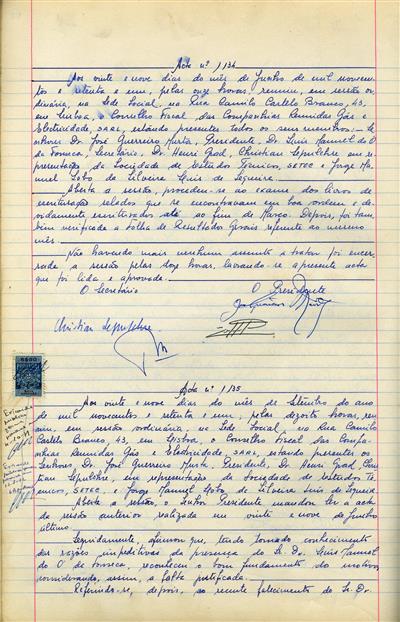 Acta nº 1134
Aos vinte e nove dias do mês de Junho de mil novecen-
tos e setenta e um, pelas onze horas, reuniu, em sessão or-
dinária, na Sede Social, na Rua Camilo Castelo Branco, 43,
em Lisboa, o Conselho Fiscal das Companhias Reunidas Gás e
Electricidade, SARL, estando presentes todos os seus membros: Se-
nhores Dr. José Guerreiro Murta, Presidente, Dr. Luís Manuel do O'
da Fonseca, Secretário, Dr. Henri Grad, Christian Sepulchre, em re-
presentação da Sociedade de Estudos Técnicos, SETEC e Jorge Ma-
nuel Lobo da Silveira Luís de Sequeira.
Aberta a sessão, procedeu-se ao exame dos livros de
escrituração selados que se encontravam em boa ordem e de-
vidamente escriturados até ao fim de Março. Depois, foi tam-
bém verificada a Folha de Resultados Gerais referente ao mesmo
mês.
Não havendo mais nenhum assunto a tratar foi encer-
rada a sessão pelas doze horas, lavrando-se a presente acta
que foi lida e aprovada.
O Secretário O Presidente
Christian Sepulchre
Acta nº 1135
Aos vinte e nove dias do mês de Setembro do ano
de mil novecentos e setenta e um, pelas dezoito horas, reu-
niu, em sessão ordinária, na Sede Social, na Rua Camilo
Castelo Branco, 43, em Lisboa, o Conselho Fiscal das Compa-
nhias Reunidas Gás e Electricidade, SARL, estando presentes os
Senhores Dr. José Guerreiro Murta, Presidente, Dr. Henri Grad, Chris-
tian Sepulchre, em representação da Sociedade de Estudos Té-
cnicos, SETEC, e Jorge Manuel Lobo da Silveira Luís de Sequeira
Aberta a sessão, o Senhor Presidente mandou ler a acta
da sessão anterior realizada em vinte e nove de Junho
último.
Seguidamente, afirmou que, tendo tomado conhecimento
das razões impeditivas da presença do Sr. Dr. Luís Manuel
do O' da Fonseca, reconheceu o bom fundamento do motivo
considerando, assim, a falta justificada.
Referindo-se, depois, ao recente falecimento do Sr. Dr.